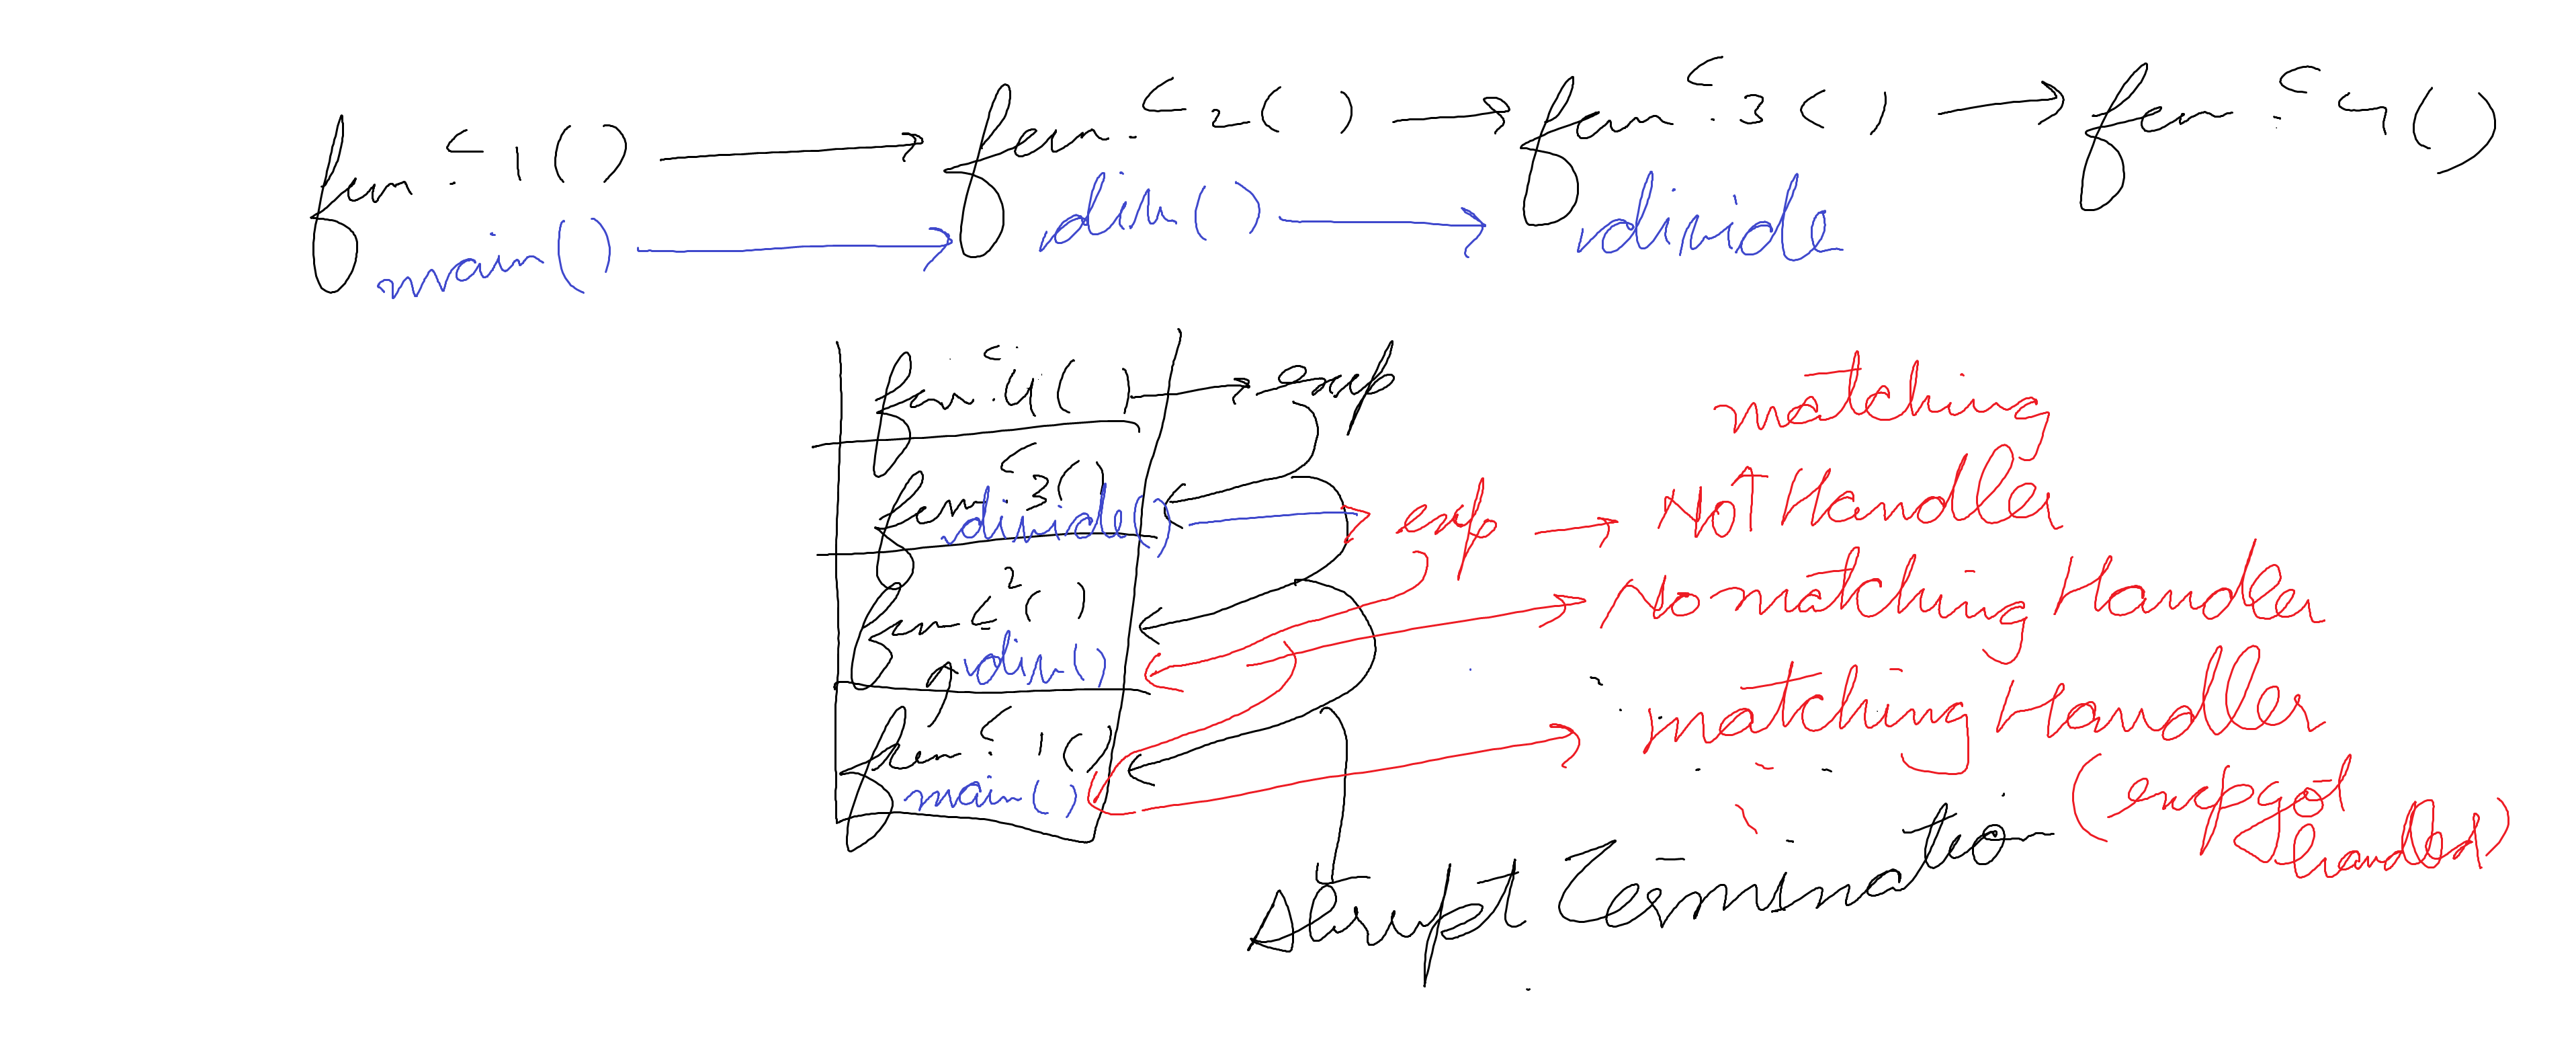 func 1() → func 2() → func 3() → func 4()
main() → div() → divide
func 4() → excp
func 3()
divide() → exp → matching Not Handler
func 2()
div() → No matching Handler
func 1()
main() → matching Handler
(excp got handled)
Abrupt Termination